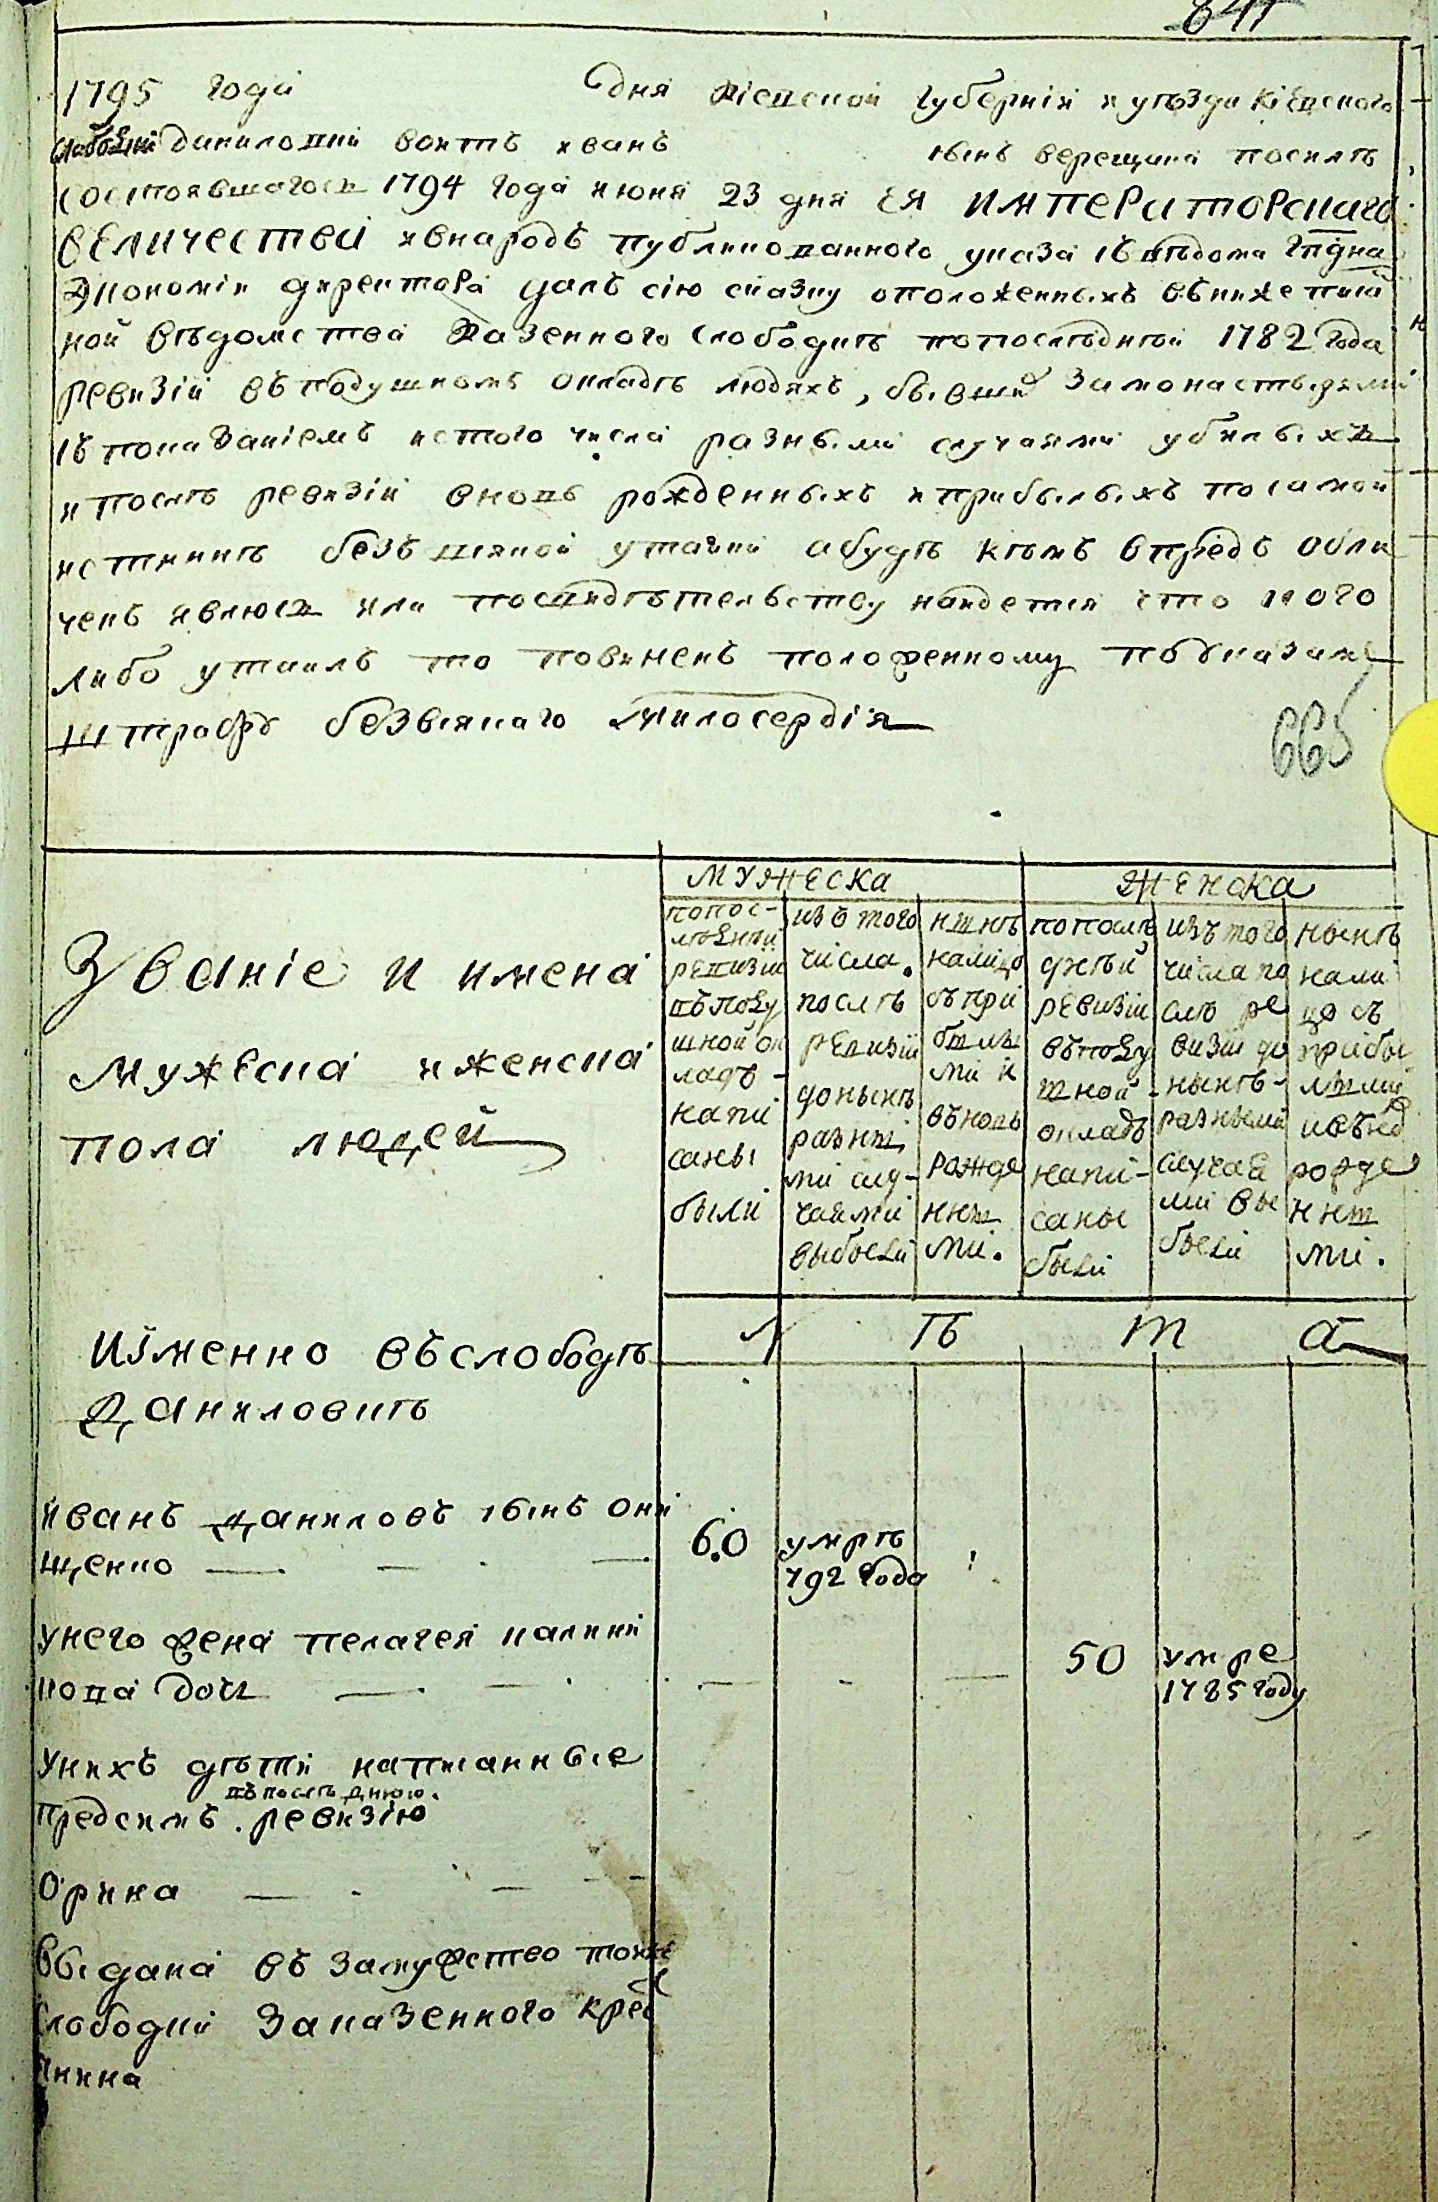 841
1795 года дня Кіевской губерніи и уѣзда Кіевского
слободки даниловки воитъ иванъ сынъ верещака послѣ
состоявшагося 1794 года июня 23 дня ЕЯ ИМПЕРАТОРСКАГО
ВЕЛИЧЕСТВА и внародъ публикованного указа съ вѣдома Гпдна
Экономіи директора далъ сію сказку о положенныхъ в нижепи
ной вѣдомства Казенного слободѣ по послѣдней 1782 года
ревизіи въ подушномъ окладѣ людяхъ, бывши за монастырями
съ показаніемъ ис того числа разными случаями убылыхъ
и послѣ ревизіи вновь рожденныхъ и прибылыхъ по самой
истиннѣ безъ всякой утайки а будѣ кѣмъ впредь обли
ченъ явлюся или по свидѣтельству найдется что кого
либо утаилъ то повиненъ положенному по указамъ
штрафу без всякаго милосердія
665
МУЖЕСКА ЖЕНСКА
Званіе и имена
мужеска и женска
пола людей
по пос-
лѣдней
ревизіи
въ поду
шной ок
ладъ -
напи
саны
были
изъ того
числа.
послѣ
ревизіи
до нынѣ
разны
ми слу-
чаями
выбыли
нынѣ
налицо
съ при
былы
ми и
въновь
рожде
нны
ми.
по послѣ
дней
ревизіи
въ поду
шной -
окладъ
напи-
саны
были
изъ того
числа по
слѣ ре
визіи до
нынѣ -
разными
случая
ми вы
были
нынѣ
нали
цо съ
прибы
лыми
и въно
рожде
нны
ми.
Л ѣ т а
Имменно въ слободѣ
Даниловкѣ
Иванъ Даниловъ сынъ Они
щенко
60 умрѣ
792 года
У него жена пелагея калини
кова дочь
50 умре
1785 году
У нихъ дѣти написанные
въ послѣднюю.
предсимъ. ревизію
Орина
Выдана въ замужство тойже
слободки за казенного крес
янина